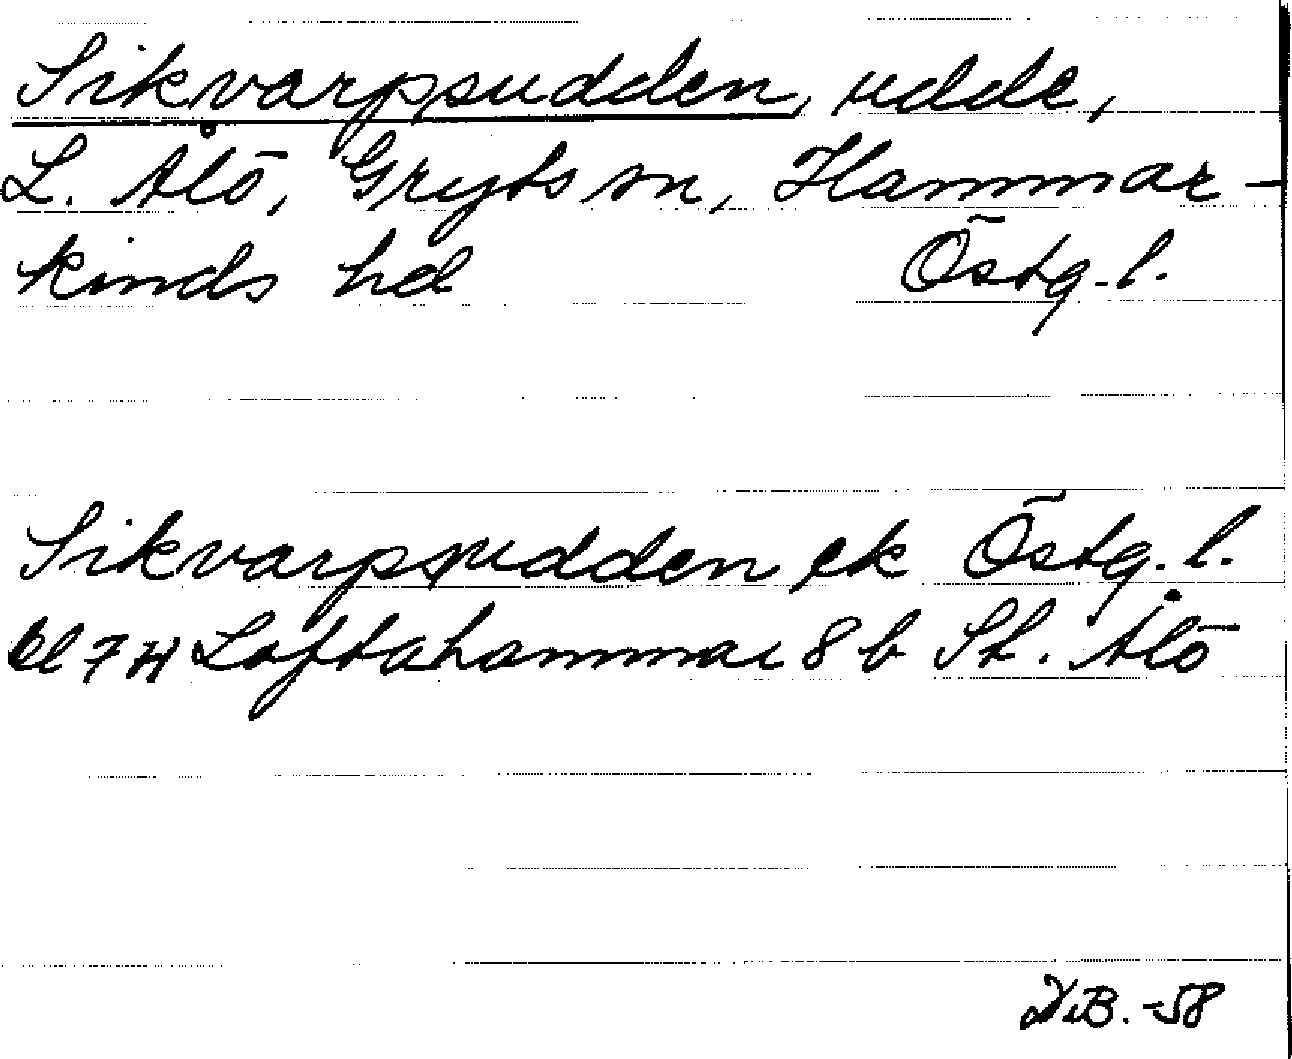 Sikvarpsudden, udde,
L. Ålö, Gryts sn, Hammar-
kinds hd Östg. l.
Sikvarpsudden ek Östg. l.
bl 7 H Loftahammar 8 b St. Ålö
N.B. -58